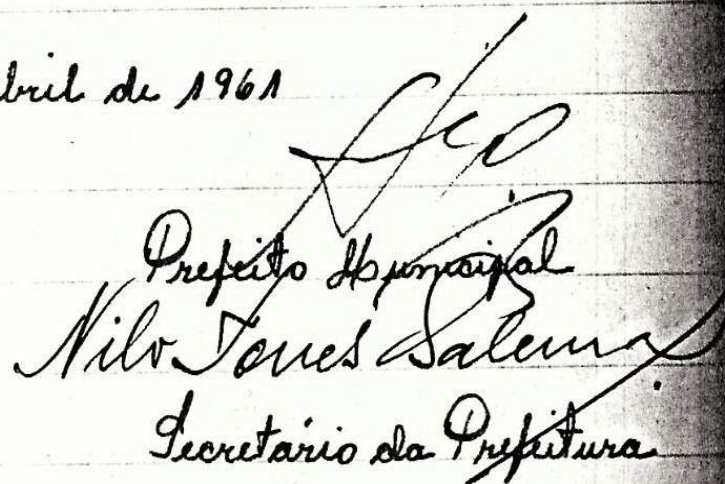 bril de 1961
Prefeito Municipal
Nilo Torres Salema
Secretário da Prefeitura